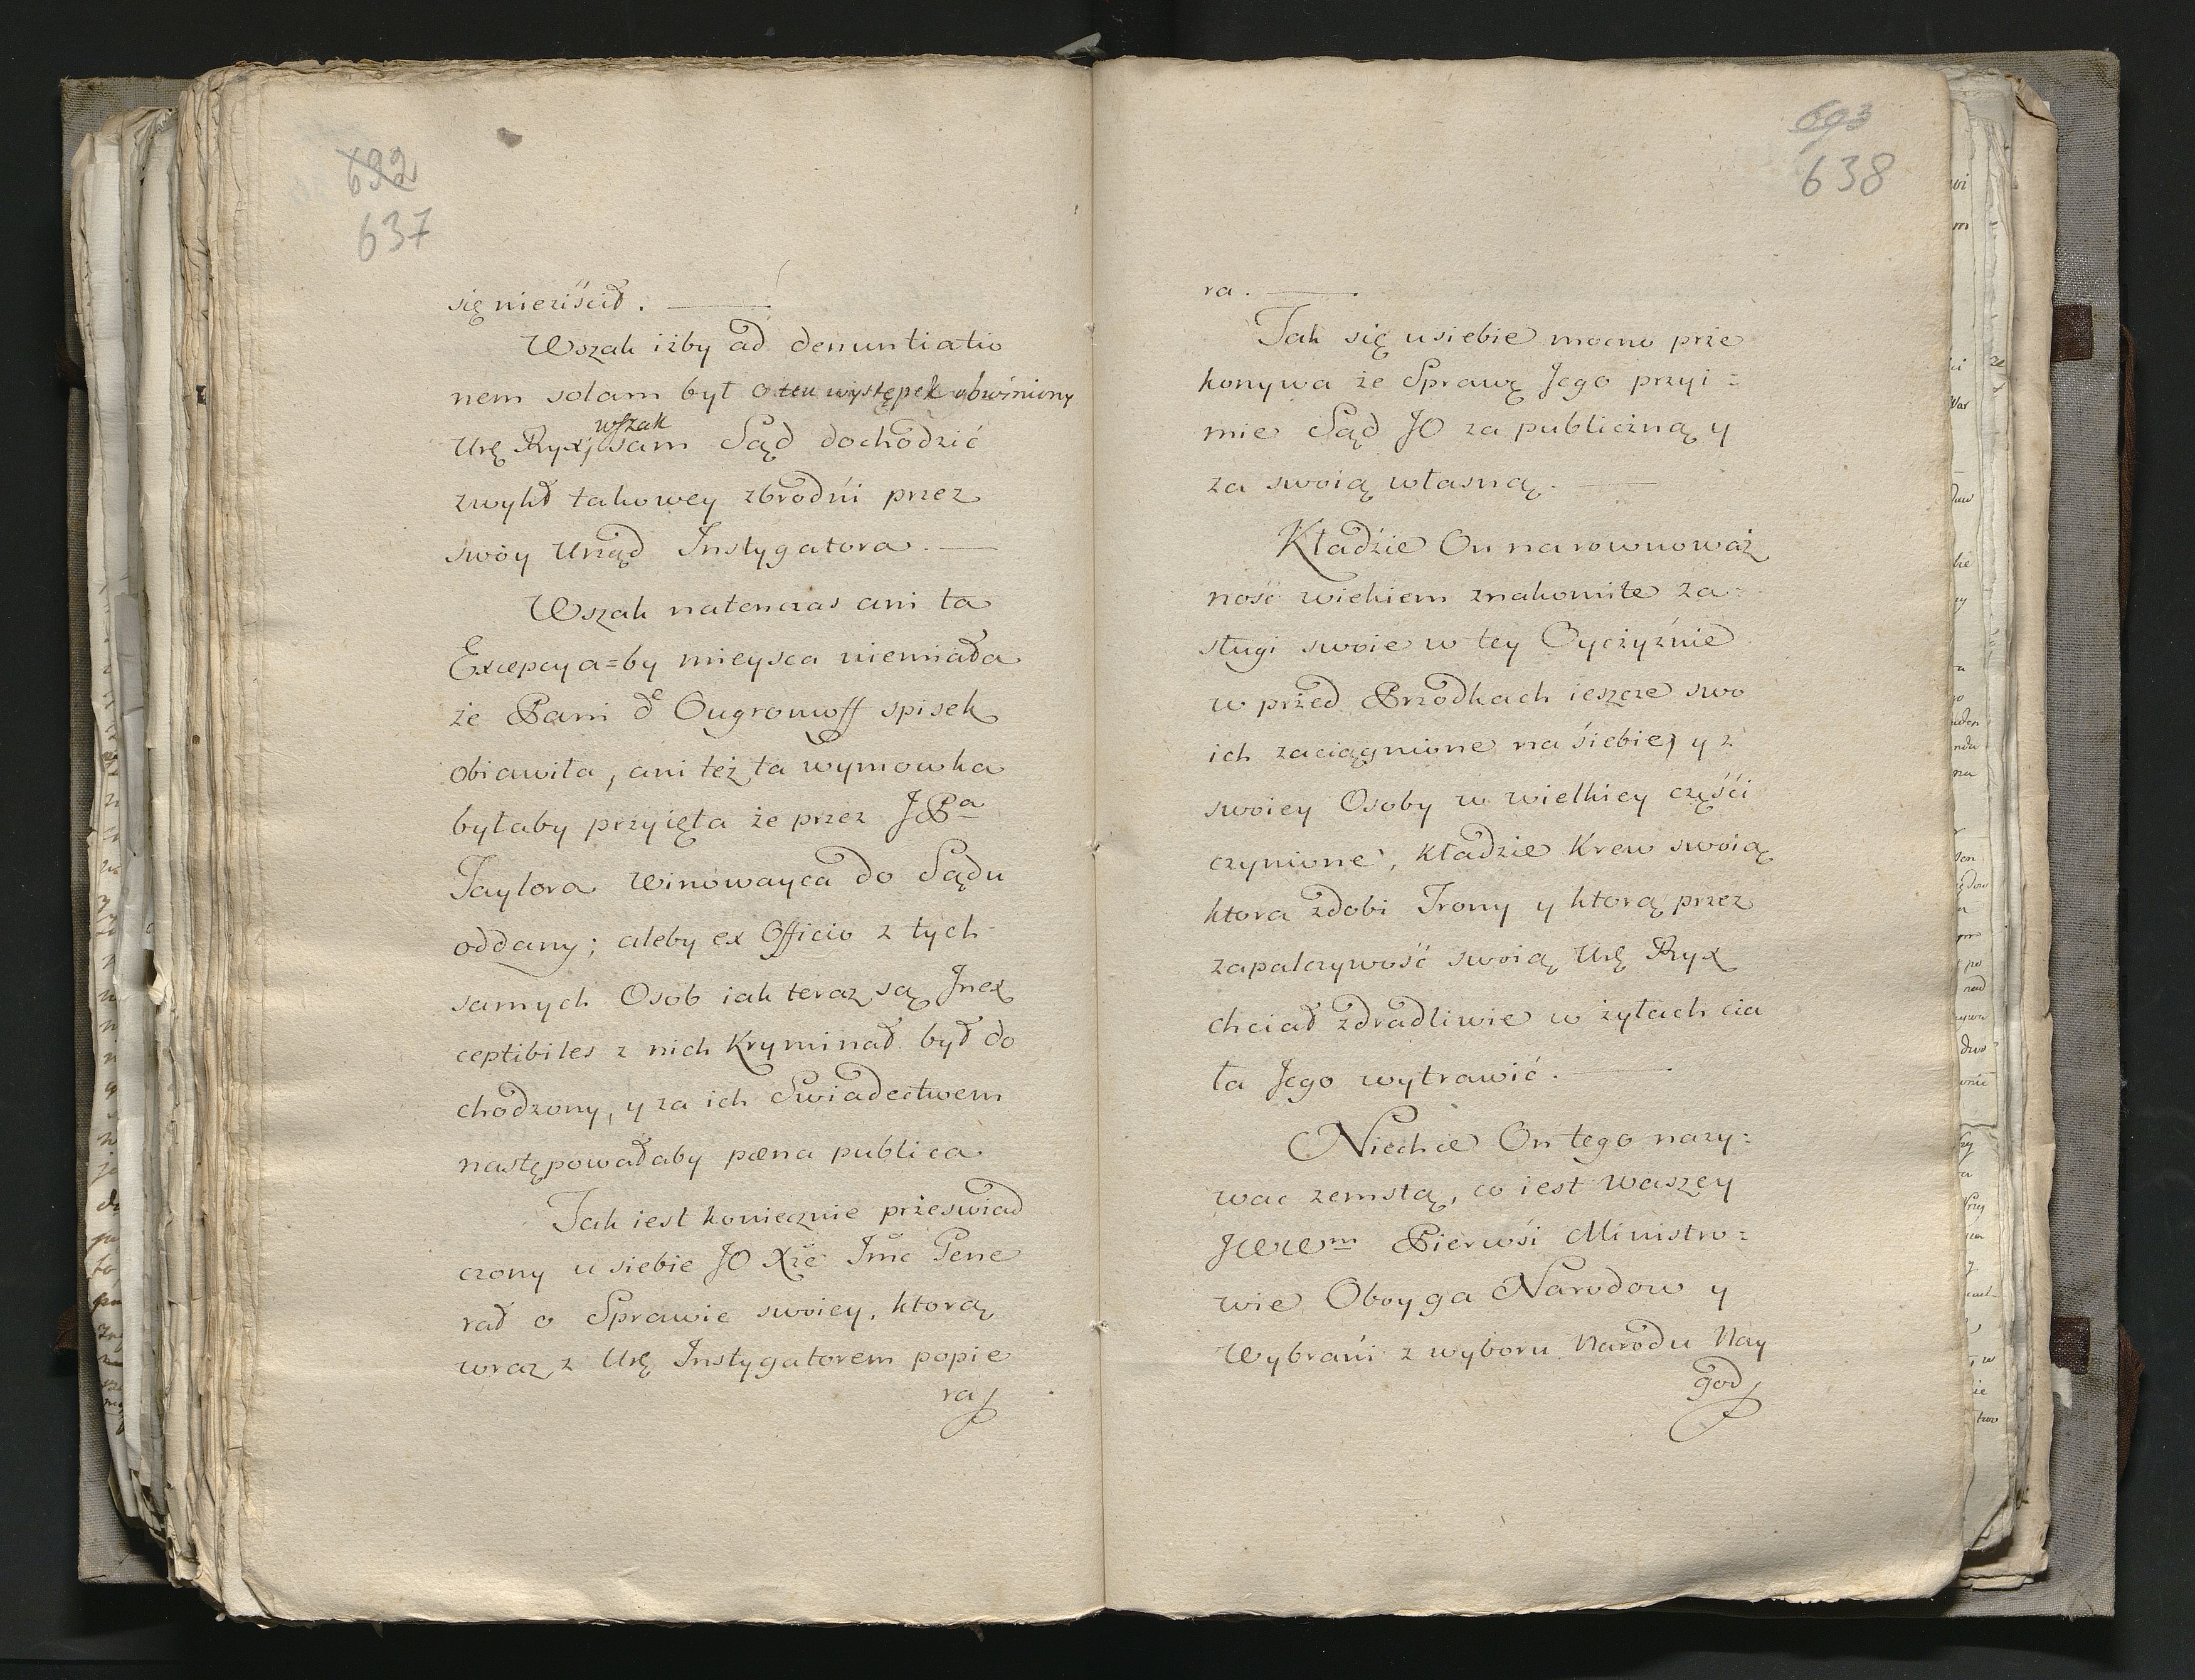 692
637
się nieziścił.
Wszak iżby ad denuntiatio
nem solam był o ten występek obwiniony
wszak
Urę Ryx, sam Sąd dochodzić
zwykł takowey zbrodni przez
swóy Urząd Instygatora.
Wszak natenczas ani ta
Excepcya=by mieysca niemiała
że Pani de Ougromoff spisek
obiawiła, ani też ta wymowka
byłaby przyięta że przez JPa
Taylora Winowayca do Sądu
oddany; aleby ex Officio z tych
samych Osob iak teraz są Inex
ceptibiles z nich Kryminał był do
chodzony, y za ich Swiadectwem
następowałaby pœna publica
Tak iest koniecznie przeswiad
czony u siebie JO Xże Jmć Gene
rał o Sprawie swoiey, ktorą
wraz z Urę Instygatorem popie
ra
693
638
ra.
Tak się u siebie mocno prze
konywa że Sprawę Jego przyi=
mie Sąd JO za publiczną y
za swoią własną.
Kładzie On na rownoważ
ność wiekiem znakomite za=
sługi swoie w tey Oyczyznie
w przed Przodkach ieszcze swo
ich zaciągnione na siebie, y z
swoiey Osoby w wielkiey części
czynione, kładzie Krew swoią
ktora zdobi Trony y ktorą przez
zapalczywość swoią Urę Ryx
chciał zdradliwie w żyłach cia
ła Jego wytrawić.
Niechce On tego nazy=
wac zemstą, co iest Waszey
JWWm Pierwsi Ministro=
wie Oboyga Narodow y
Wybrani z wyboru Narodu Nay
god